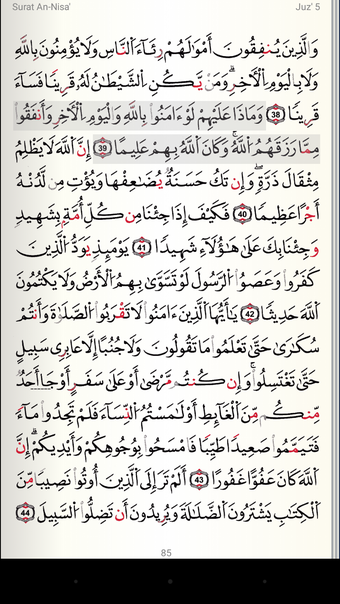 Surat An-Nisa' Juz' 5
وَالَّذِينَ يُنفِقُونَ أَمْوَالَهُمْ رِئَاءَ النَّاسِ وَلَا يُؤْمِنُونَ بِاللَّهِ
وَلَا بِالْيَوْمِ الْآخِرِ ۗ وَمَن يَكُنِ الشَّيْطَانُ لَهُ قَرِينًا فَسَاءَ
قَرِينًا 38 وَمَاذَا عَلَيْهِمْ لَوْ ءَامَنُوا بِاللَّهِ وَالْيَوْمِ الْآخِرِ وَأَنفَقُوا
مِمَّا رَزَقَهُمُ اللَّهُ ۚ وَكَانَ اللَّهُ بِهِمْ عَلِيمًا 39 إِنَّ اللَّهَ لَا يَظْلِمُ
مِثْقَالَ ذَرَّةٍ ۖ وَإِن تَكُ حَسَنَةً يُضَاعِفْهَا وَيُؤْتِ مِن لَّدُنْهُ
أَجْرًا عَظِيمًا 40 فَكَيْفَ إِذَا جِئْنَا مِن كُلِّ أُمَّةٍ بِشَهِيدٍ
وَجِئْنَا بِكَ عَلَىٰ هَٰؤُلَاءِ شَهِيدًا 41 يَوْمَئِذٍ يَوَدُّ الَّذِينَ
كَفَرُوا وَعَصَوُا الرَّسُولَ لَوْ تُسَوَّىٰ بِهِمُ الْأَرْضُ وَلَا يَكْتُمُونَ
اللَّهَ حَدِيثًا 42 يَا أَيُّهَا الَّذِينَ ءَامَنُوا لَا تَقْرَبُوا الصَّلَاةَ وَأَنتُمْ
سُكَارَىٰ حَتَّىٰ تَعْلَمُوا مَا تَقُولُونَ وَلَا جُنُبًا إِلَّا عَابِرِي سَبِيلٍ
حَتَّىٰ تَغْتَسِلُوا ۚ وَإِن كُنتُم مَّرْضَىٰ أَوْ عَلَىٰ سَفَرٍ أَوْ جَاءَ أَحَدٌ
مِّنكُم مِّنَ الْغَائِطِ أَوْ لَامَسْتُمُ النِّسَاءَ فَلَمْ تَجِدُوا مَاءً
فَتَيَمَّمُوا صَعِيدًا طَيِّبًا فَامْسَحُوا بِوُجُوهِكُمْ وَأَيْدِيكُمْ ۗ إِنَّ
اللَّهَ كَانَ عَفُوًّا غَفُورًا 43 أَلَمْ تَرَ إِلَى الَّذِينَ أُوتُوا نَصِيبًا مِّنَ
الْكِتَابِ يَشْتَرُونَ الضَّلَالَةَ وَيُرِيدُونَ أَن تَضِلُّوا السَّبِيلَ 44
85